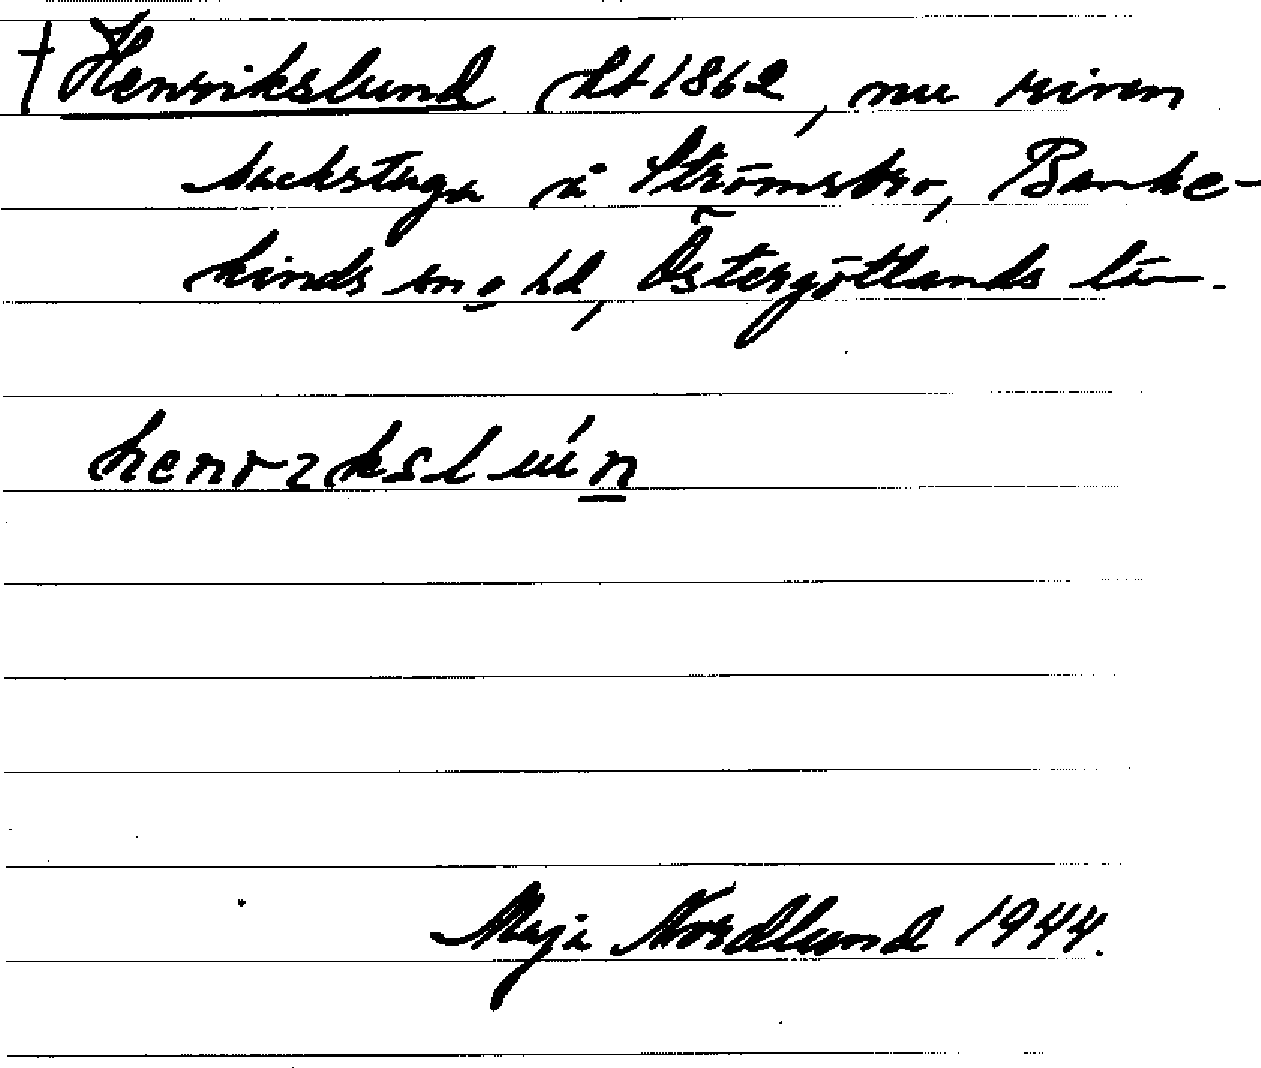 † Henrikslund Hf 1862, nu riven
backstuga å Strömsbro, Banke-
kinds sn o hd, Östergötlands län.
henrikslún
Maja Nordlund 1944.